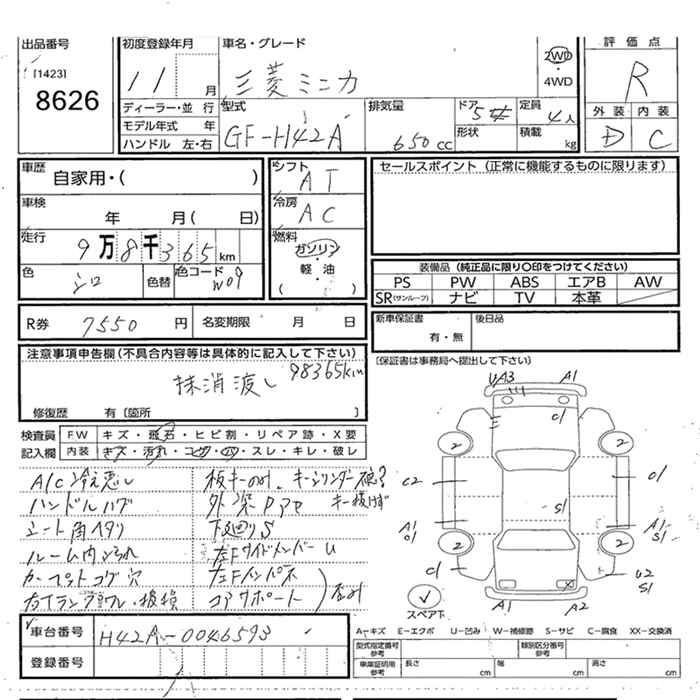 出品番号
[1423]
8626
初度登録年月
11 月
ディーラー・並 行
モデル年式 年
ハンドル 左・右
車名・グレード
三菱ミニカ
2WD
・
4WD
型式
GF-H42A
排気量
650 cc
ドア
5
形状
定員
4人
積載
kg
評価点
R
外装 内装
D C
車歴
自家用・( )
車検
年 月( 日)
走行
9万8千365km
色
シロ
色替
色コード
W09
シフト
AT
冷房
AC
燃料
ガソリン
・
軽・油
( )
セールスポイント (正常に機能するものに限ります)
装備品 (純正品に限り○印をつけてください)
PS PW ABS エアB AW
SR(サンルーフ) ナビ TV 本革
R券 7550 円 名変期限 月 日
新車保証書
有・無
後日品
(保証書は事務局へ提出して下さい)
注意事項申告欄(不具合内容等は具体的に記入して下さい)
98365km
抹消渡し
修復歴 有〔箇所 〕
検査員
記入欄
FW キズ・飛石・ヒビ割・リペア跡・X要
内装 キズ・汚れ・コゲ・穴・スレ・キレ・破レ
A/C冷え悪し
ハンドルハゲ
シート角ヘタリ
ルーム内よごれ
カーペットコゲ穴
板キーのみ、キーシリンダー
キー抜けず
下廻りS
左FサイドメンバーU
左Fインパネ
コアサポート
車台番号 H42A-0046593
登録番号
UA3 A1
C1
2 2
C2 C1
S1
A1 A1
S1
2 2
C1 U2
S1
A1 A2
スペア下
A−キズ E−エクボ U−凹み W−補修跡 S−サビ C−腐食 XX−交換済
型式指定番号
参考
類別区分番号
参考
車庫証明用
参考
長さ cm 幅 cm 高さ cm